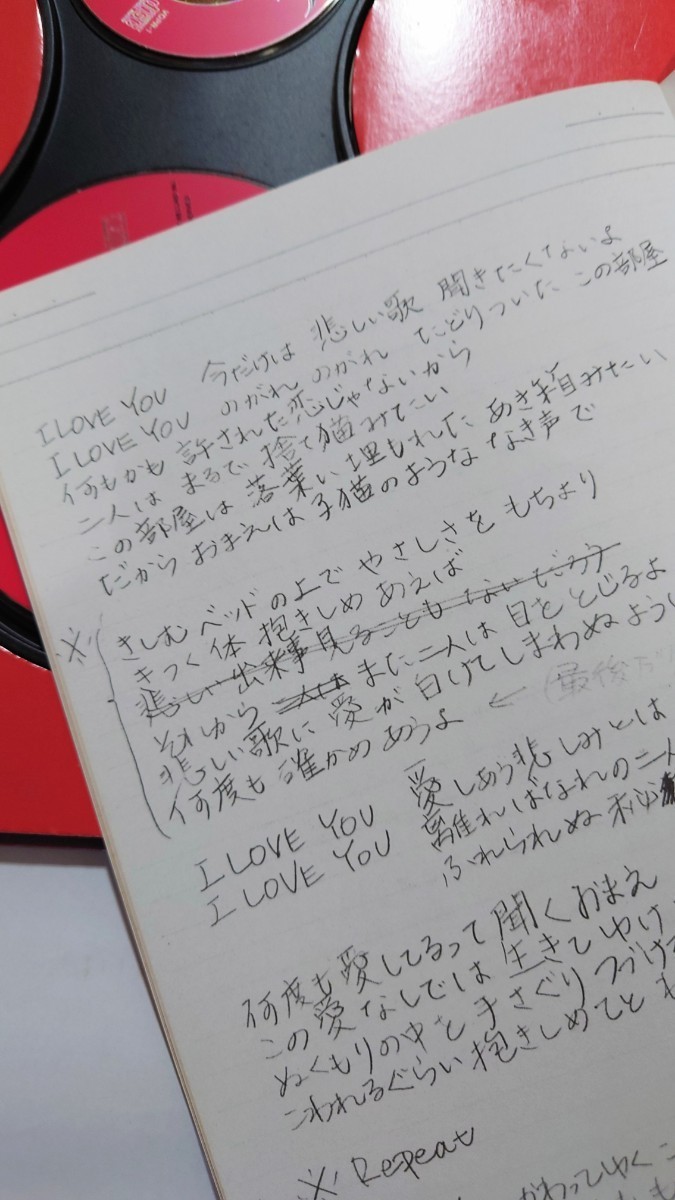 I LOVE YOU 今だけは 悲しい歌 聞きたくないよ
I LOVE YOU のがれ のがれ たどりついた この部屋
何もかも 許された恋じゃないから
二人は まるで 捨て猫みたい
この部屋は 落葉い 埋もれた あき箱みたい
だから おまえは 子猫のような なき声で
※
きしむ ベッドの上で やさしさを もちより
きつく 体 抱きしめ あえば
悲しい 出来事見ることも ないだろう
それから 二人は また二人は 目を とじるよ
悲しい歌に 愛が 白けて しまわぬ ように
何度も 誰かめ あうよ ← (最後
I LOVE YOU 愛しあう悲しみとは
I LOVE YOU 離ればなれの二人
ふれられぬ 秘
何度も愛してるって 聞く おまえ
この愛 なしでは 生きて ゆけ
ぬくもりの中を 手さぐり つづけ
こわれるぐらい 抱きしめてと も
※ Repeat
がわってゆく こ